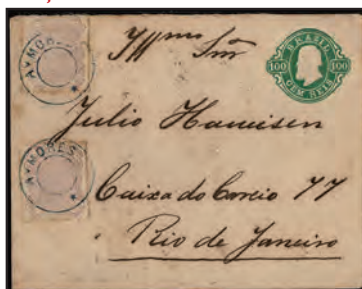 AYMORES
Illmo Snr
BRASIL
100 100
CEM REIS
Julio
AYMORES
Caixa do Correio 77
Rio de Janeiro